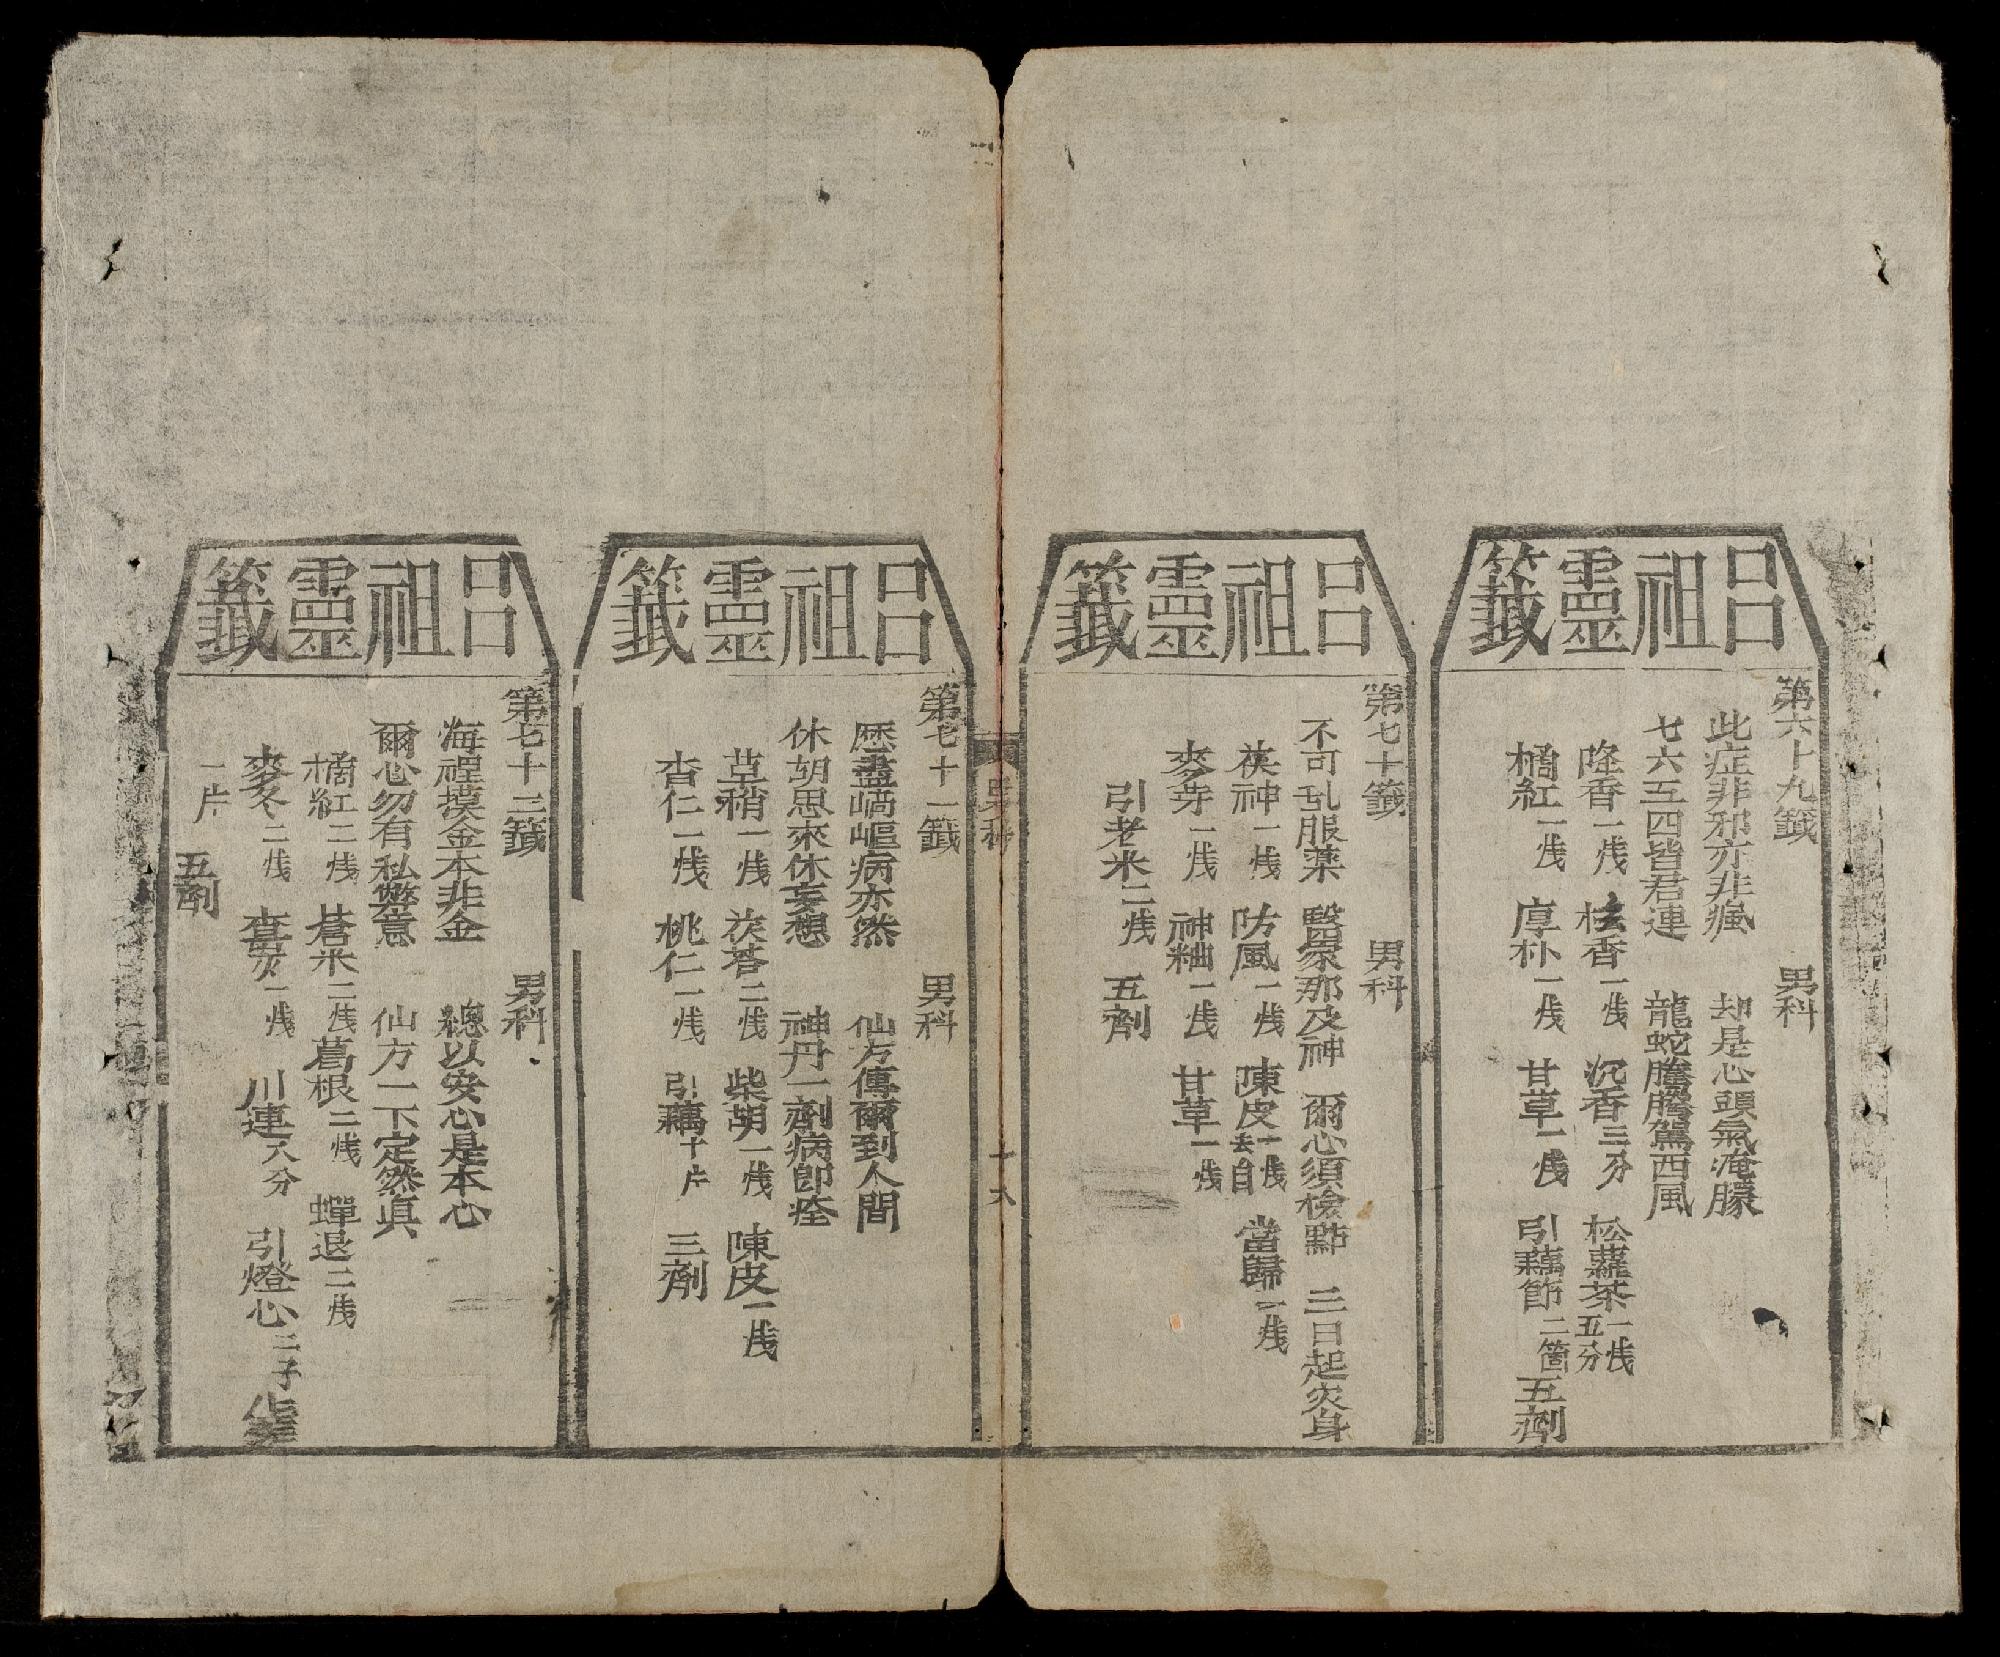 呂祖靈籤
第六十九籤 男科
此症非邪亦非瘋 却是心頭氣淹朦
七六五四皆君連 龍蛇騰騰駕西風
降香一戋 枟香一戋 沉香三分 松蘿茶一戋五分
橘紅一戋 厚朴一戋 甘草一戋 引藕節二箇 五劑
呂祖靈籤
第七十籤 男科
不可乱服薬 醫家那及神 爾心須檢點 三日起灾身
茯神一戋 防風一戋 陳皮一戋去白 當歸一戋
麥芽一戋 神粬一戋 甘草一戋
引老米二戋 五劑
男科 十八
呂祖靈籤
第七十一籤 男科
歷盡崎嶇病亦然 仙方傳爾到人間
休胡思來休妄想 神丹一劑病即痊
草稍一戋 茯苓二戋 柴胡一戋 陳皮一戋
杏仁一戋 桃仁一戋 引藕十片 三劑
呂祖靈籤
第七十二籤 男科
海裡摸金本非金 總以安心是本心
爾心勿有私弊意 仙方一下定然真
橘紅二戋 蒼米二戋 葛根二戋 蟬退二戋
麥冬二戋 查炭一戋 川連八分 引燈心二子 生姜
一片 五劑